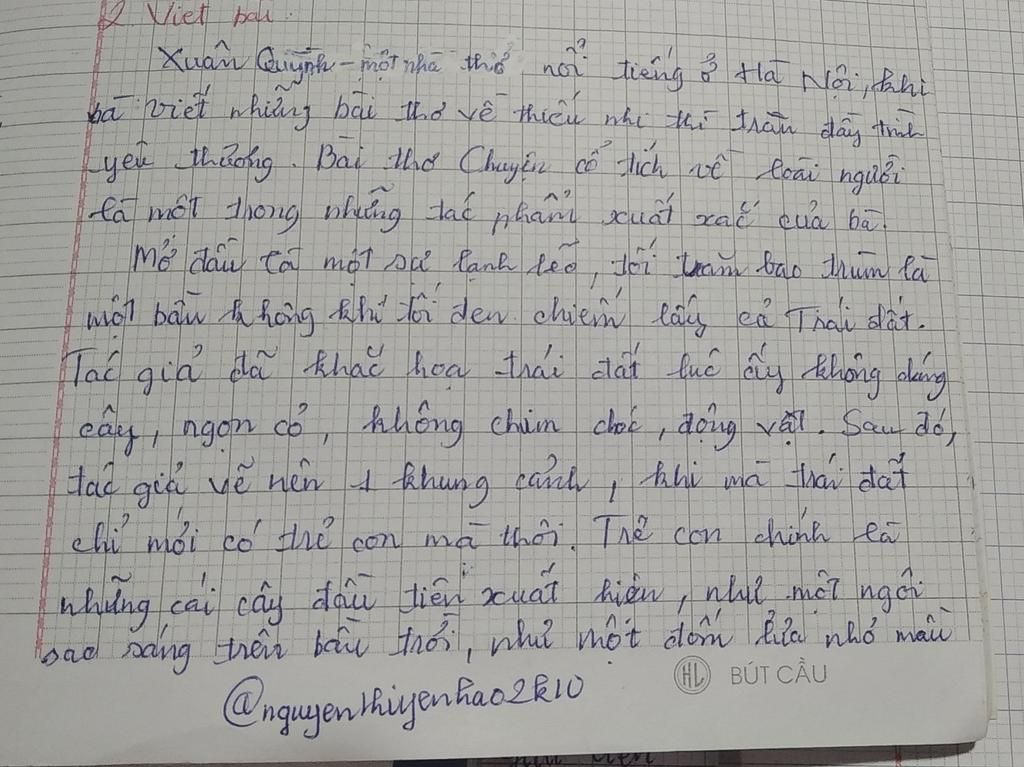 2 Viết bài:
Xuân Quỳnh - một nhà thơ nổi tiếng ở Hà Nội, khi
bà viết những bài thơ về thiếu nhi thì tràn đầy tình
yêu thương. Bài thơ Chuyện cổ tích về loài người
là một trong những tác phẩm xuất xắc của bà.
Mở đầu là một sự lạnh lẽo, tối tăm bao trùm là
một bầu không khí tối đen chiếm lấy cả Trái đất.
Tác giả đã khắc họa trái đất lúc ấy không dáng
cây, ngọn cỏ, không chim chóc, động vật. Sau đó,
tác giả vẽ nên 1 khung cảnh, khi mà trái đất
chỉ mới có trẻ con mà thôi. Trẻ con chính là
những cái cây đầu tiên xuất hiện, như một ngôi
sao sáng trên bầu trời, như một đốm lửa nhỏ màu
HL BÚT CẦU
@nguyenthiyenhao2k10